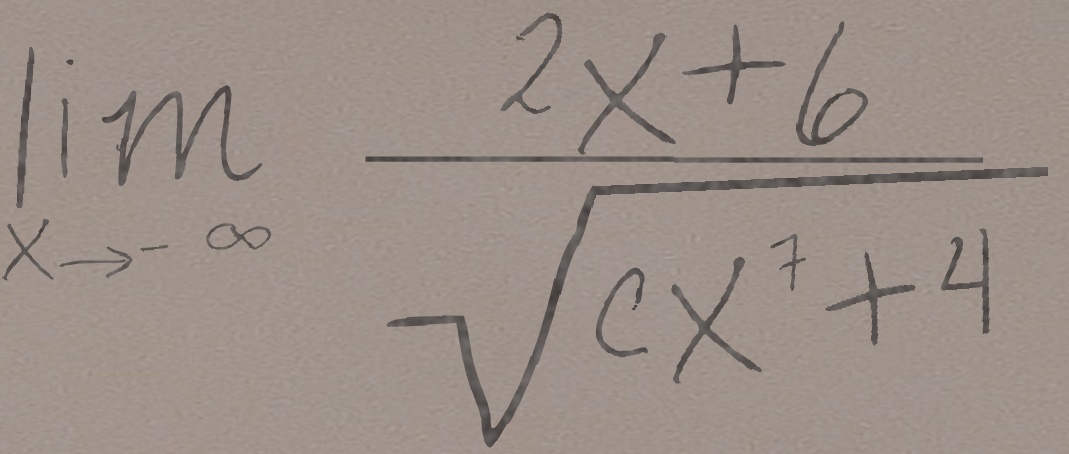 lim x→-∞ (2x+6)/√(cx⁷+4)